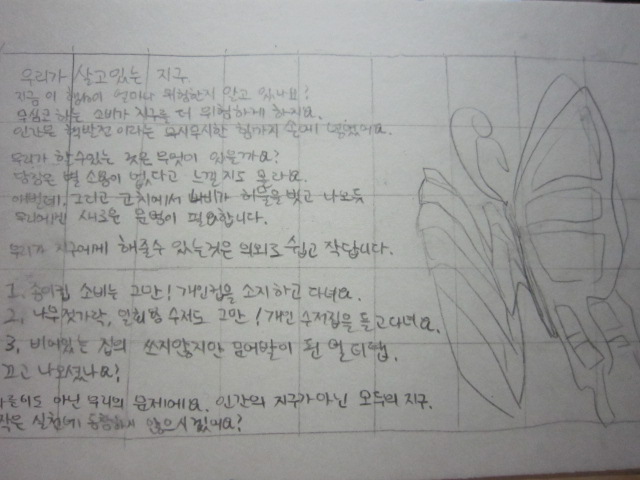 우리가 살고있는 지구
지금 이 행성이 얼마나 위험한지 알고 있나요?
무심코 하는 소비가 지구를 더 위험하게 하지요.
인간은 핵발전 이라는 무시무시한 힘까지 손에 넣었어요.
우리가 할수있는 것은 무엇이 있을까요?
당장은 별 소용이 없다고 느낄지도 몰라요.
애벌레, 그리고 고치에서 나비가 허물을 벗고 나오듯
우리에겐 새로운 문명이 필요합니다.
우리가 지구에게 해줄수 있는것은 의외로 쉽고 작답니다.
1. 종이컵 소비는 그만! 개인컵을 소지하고 다녀요.
2. 나무젓가락, 일회용 수저도 그만! 개인 수저집을 들고다녀요.
3. 비어있는 집의 쓰지않지만 문어발이 된 멀티탭.
끄고 나오셨나요?
다름이도 아닌 우리의 문제에요. 인간의 지구가아닌 모두의 지구.
작은 실천에 동참하지 않으시겠어요?